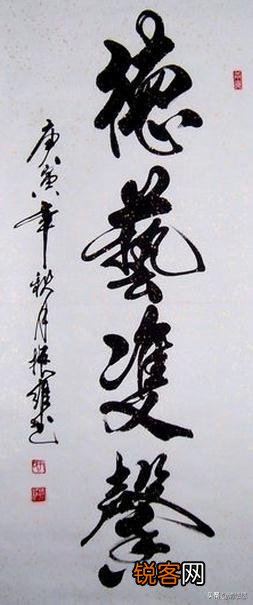 德藝雙馨
庚寅年秋月振雄書
锐客网